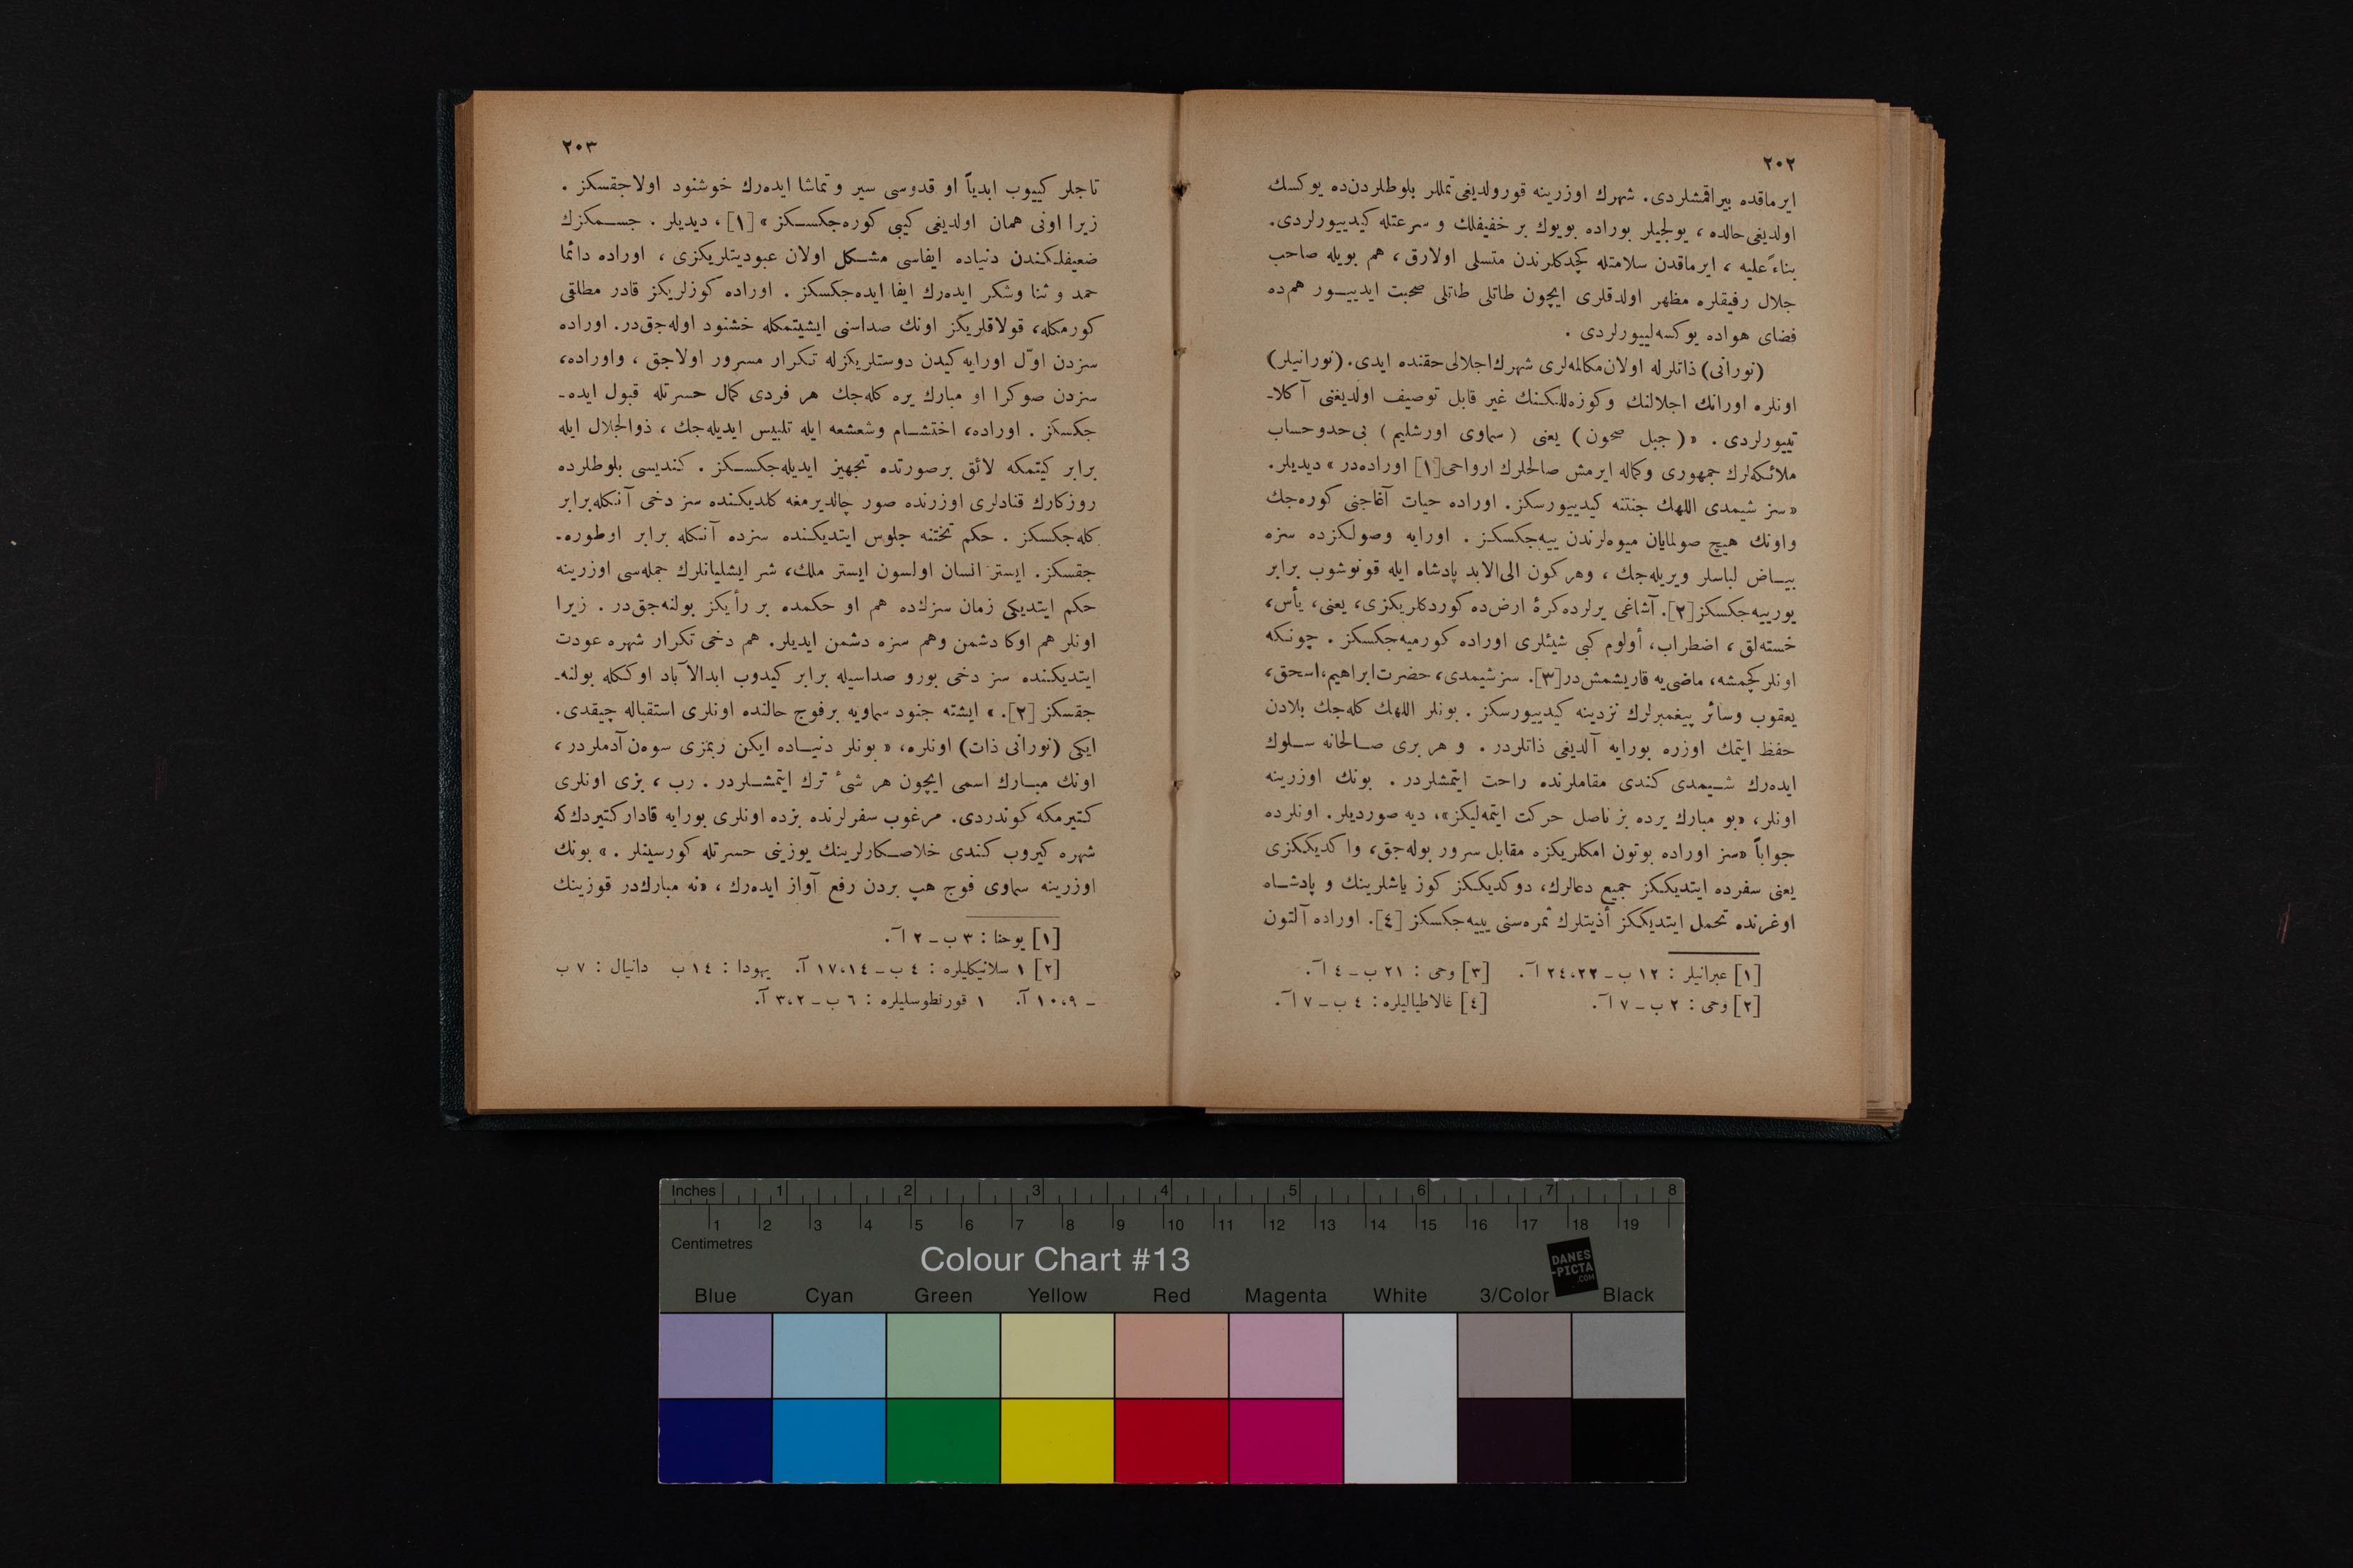 ٢٠٢
ایرماقده بیراقمشلردی. شهرك اوزرینه قورولدیغی تمللر بلوطلردن‌ده یوكسك
اولدیغی حالده ، یولجیلر بوراده بویوك بر خفیفلك و سرعتله كیدییورلردی.
بناءً علیه ، ایرماقدن سلامتله كچدكلرندن متسلی اولارق ، هم بویله صاحب
جلال رفیقلره مظهر اولدقلری ایچون طاتلی طاتلی صحبت ایدییـور هم‌ده
فضای هواده یوكسه‌لییورلردی .
(نورانی) ذاتلرله اولان مكالمه‌لری شهرك اجلالی حقنده ایدی. (نورانیلر)
اونلره اورانك اجلالنك وكوزه‌للكنك غیر قابل توصیف اولدیغنی آكلا-
تییورلردی . « (جبل صحون) یعنی (سماوی اورشلیم) بی‌حدوحساب
ملائكه‌لرك جمهوری وكماله ایرمش صالحلرك ارواحی[١] اوراده‌در » دیدیلر.
« سز شیمدی اللهك جنتنه كیدییورسكز. اوراده حیات آغاجنی كوره‌جك
واونك هیچ صولمایان میوه‌لرندن ییه‌جكسكز . اورایه وصولكزده سزه
بیـاض لباسلر ویریله‌جك ، وهركون الی‌الابد پادشاه ایله قونوشوب برابر
یورییه‌جكسكز[٢]. آشاغی یرلرده كرهٔ ارض‌ده كوردكلریكزی، یعنی، یأس،
خسته‌لق ، اضطراب، أولوم كبی شیئلری اوراده كورمیه‌جكسكز . چونكه
اونلر كچمشه، ماضی‌یه قاریشمش‌در[٣]. سز شیمدی، حضرت ابراهیم،اسحق،
یعقوب وسائر پیغمبرلرك نزدینه كیدییورسكز . بونلر اللهك كله‌جك بلادن
حفظ ایتمك اوزره بورایه آلدیغی ذاتلردر . و هر بری صـالحانه سـلوك
ایده‌رك شـیمدی كندی مقاملرنده راحت ایتمشلردر . بونك اوزرینه
اونلر، «بو مبارك یرده بز ناصل حركت ایتمه‌لیكز»، دیه صوردیلر. اونلرده
جواباً «سز اوراده بوتون امكلریكزه مقابل سرور بوله‌جق، واكدیككزی
یعنی سفرده ایتدیككز جمیع دعالرك، دوكدیككز كوز یاشلرینك و پادشـاه
اوغرنده تحمل ایتدیككز أذیتلرك ثمره‌سنی ییه‌جكسكز [٤]. اوراده آلتون
[١] عبرانیلر : ١٢ ب ـ ٢٤،٢٢ آ. [٣] وحی : ٢١ ب ـ ٤ آ.
[٢] وحی : ٢ ب ـ ٧ آ. [٤] غالاطیالیلره: ٤ ب ـ ٧ آ.
٢٠٣
تاجلر كییوب ابدیاً او قدوسی سیر و تماشا ایده‌رك خوشنود اولاجقسكز .
زیرا اونی همان اولدیغی كیبی كوره‌جكســكز » [١] ، دیدیلر . جســمكزك
ضعیفلكندن دنیاده ایفاسی مشـكل اولان عبودیتلریكزی ، اوراده دائما
حمد و ثنا وشكر ایده‌رك ایفا ایده‌جكسكز . اوراده كوزلریكز قادر مطلقی
كورمكله، قولاقلریكز اونك صداسنی ایشیتمكله خشنود اوله‌جق‌در. اوراده
سزدن اوّل اورایه كیدن دوستلریكزله تكرار مسرور اولاجق ، واوراده،
سزدن صوكرا او مبارك یره كله‌جك هر فردی كمال حسرتله قبول ایده-
جكسكز . اوراده، اختشـام وشعشعه ایله تلبیس ایدیله‌جك ، ذوالجلال ایله
برابر كیتمكه لائق برصورتده تجهیز ایدیله‌جكســكز . كندیسی بلوطلرده
روزكارك قنادلری اوزرنده صور چالدیرمغه كلدیكنده سز دخی آنكله برابر
كله‌جكسكز . حكم تختنه جلوس ایتدیكنده سزده آنكله برابر اوطوره-
جقسكز. ایستر انسان اولسون ایستر ملك، شر ایشلیانلرك جمله‌سی اوزرینه
حكم ایتدیكی زمان سزك‌ده هم او حكمده بر رأیكز بولنه‌جق‌در . زیرا
اونلر هم اوكا دشمن وهم سزه دشمن ایدیلر. هم دخی تكرار شهره عودت
ایتدیكنده سز دخی بورو صداسیله برابر كیدوب ابدالآباد اونكله بولنه-
جقسكز [٢]. » ایشته جنود سماویه برفوج حالنده اونلری استقباله چیقدی.
ایكی (نورانی ذات) اونلره، « بونلر دنیـاده ایكن ربمزی سوه‌ن آدملردر ،
اونك مبـارك اسمی ایچون هر شیٔ ترك ایتمشـلردر . رب ، بزی اونلری
كتیرمكه كوندردی. مرغوب سفرلرنده بزده اونلری بورایه قادار كتیردك‌كه
شهره كیروب كندی خلاصـكارلرینك یوزینی حسرتله كورسینلر . » بونك
اوزرینه سماوی فوج هپ بردن رفع آواز ایده‌رك ، «نه مبارك‌در قوزینك
[١] یوحنا : ٣ ب ـ ٢ آ.
[٢] ١ سلانیكلیلره : ٤ ب ـ ١٧،١٤ آ. یهودا : ١٤ ب دانیال : ٧ ب
ـ ١٠،٩ آ. ١ قورنطوسلیلره : ٦ ب ـ ٣،٢ آ.
Inches 1 2 3 4 5 6 7 8
1 2 3 4 5 6 7 8 9 10 11 12 13 14 15 16 17 18 19
Centimetres
Colour Chart #13
DANES
-PICTA
.COM
Blue Cyan Green Yellow Red Magenta White 3/Color Black